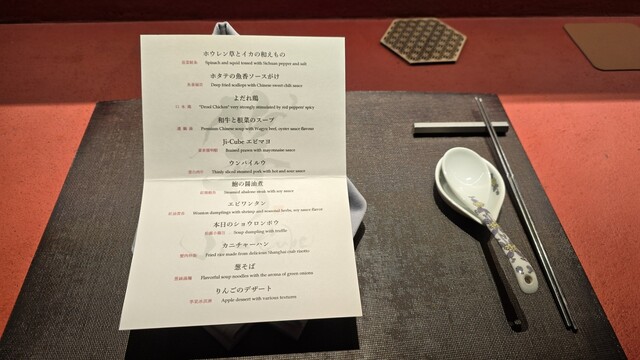 ホウレン草とイカの和えもの
Spinach and squid tossed with Sichuan pepper and salt
ホタテの魚香ソースがけ
Deep fried scallops with Chinese sweet chili sauce
よだれ鶏
"Drool Chicken" very strongly stimulated by red peppers' spicy
和牛と根菜のスープ
Premium Chinese soup with Wagyu beef, oyster sauce flavour
Ji-Cube エビマヨ
Roasted prawn with mayonnaise sauce
ウンパイルウ
Thinly sliced steamed pork with hot and sour sauce
鮑の醤油煮
Steamed abalone steak with soy sauce
エビワンタン
Wonton dumplings with shrimp and seasonal herbs, soy sauce flavor
本日のショウロンポウ
Soup dumpling with truffle
カニチャーハン
Fried rice made from delicious Shanghai crab risotto
葱そば
Flavorful soup noodles with the aroma of green onions
りんごのデザート
Apple dessert with various textures